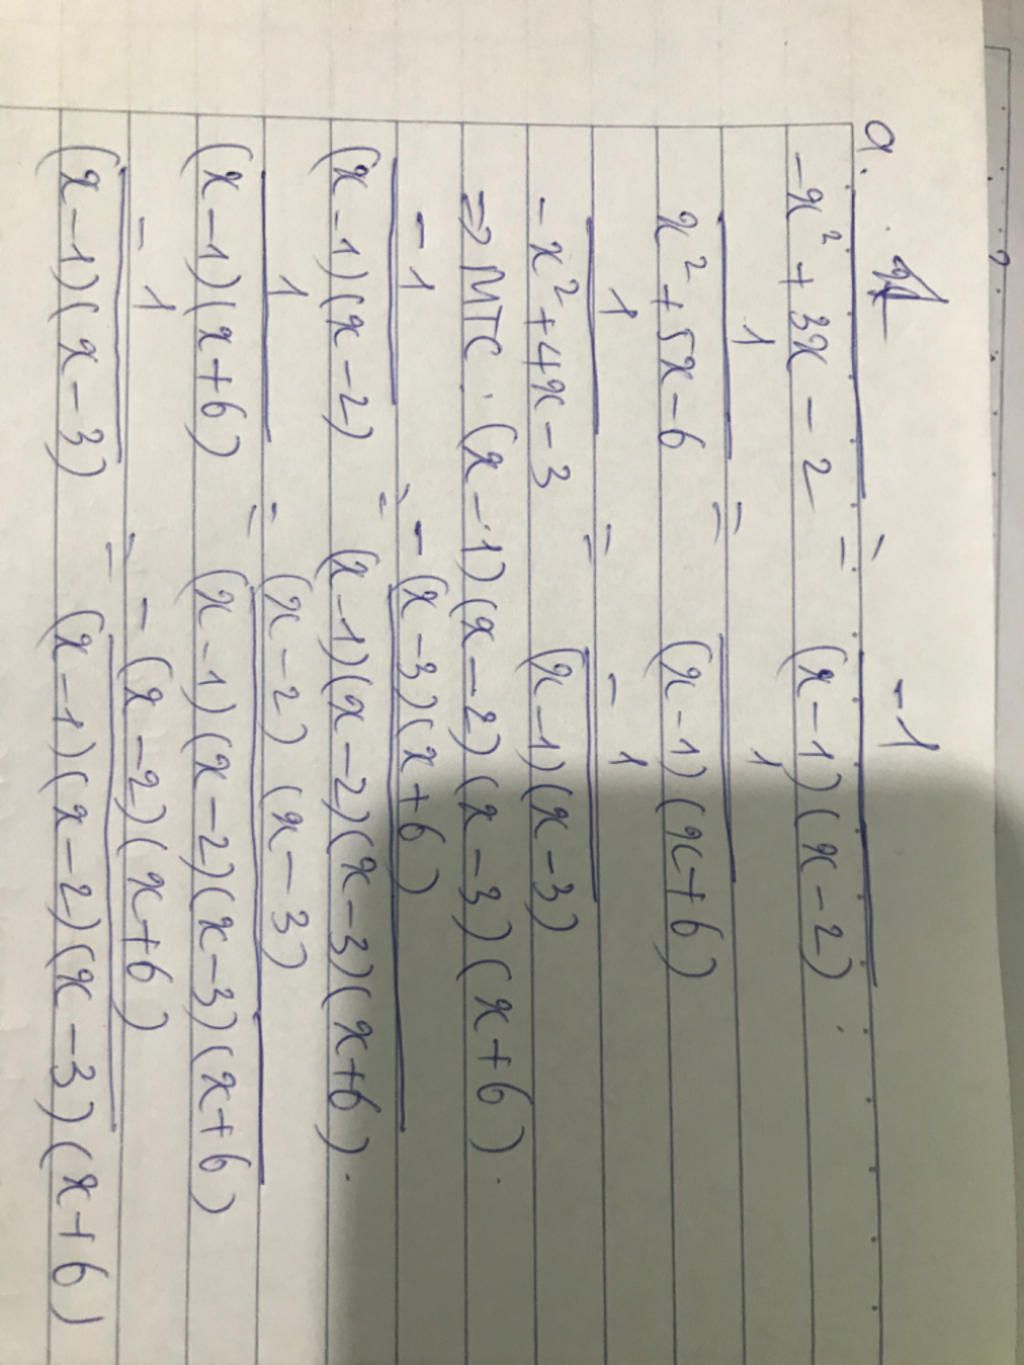 a. 1/(-x² + 3x - 2) = -1/((x-1)(x-2))
1/(x² + 5x - 6) = 1/((x-1)(x+6))
1/(-x² + 4x - 3) = -1/((x-1)(x-3))
=> MTC: (x-1)(x-2)(x-3)(x+6).
-1/((x-1)(x-2)) = -(x-3)(x+6)/((x-1)(x-2)(x-3)(x+6)).
1/((x-1)(x+6)) = (x-2)(x-3)/((x-1)(x-2)(x-3)(x+6))
-1/((x-1)(x-3)) = -(x-2)(x+6)/((x-1)(x-2)(x-3)(x+6))